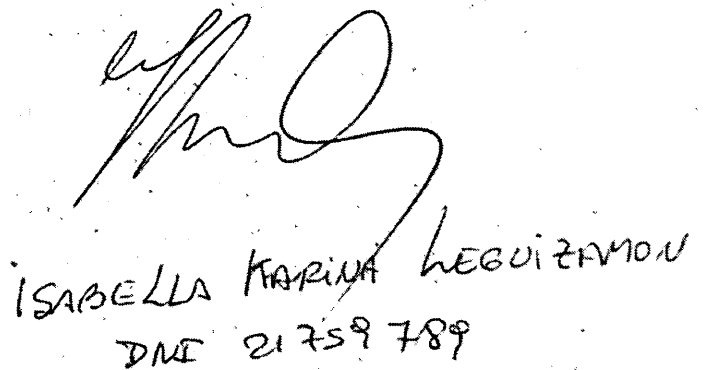 ISABELLA KARINA LEGUIZAMON
DNI 21 759 789